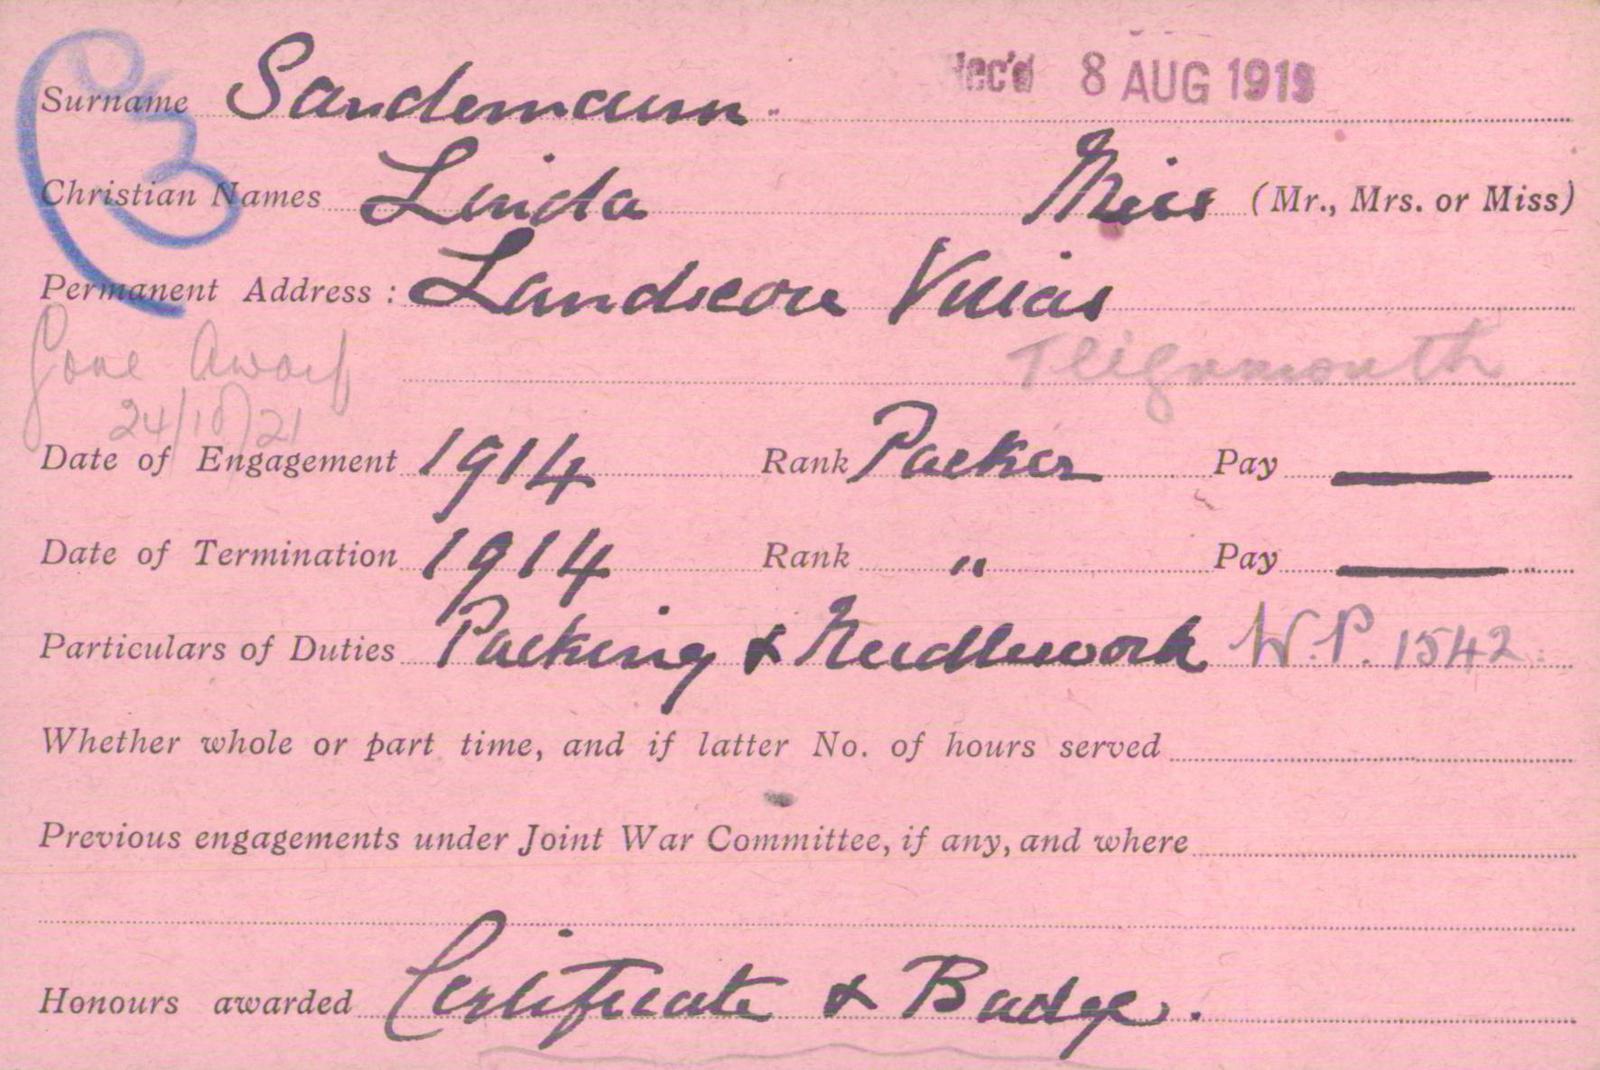 Rec'd 8 AUG 1919
Surname Sandemann
Christian Names Linda Miss (Mr., Mrs. or Miss)
Permanent Address : Landscore Villas
Gone Away Teignmouth
24/10/21
Date of Engagement 1914 Rank Packer Pay —
Date of Termination 1914 Rank " Pay —
Particulars of Duties Packing & Needlework W.P. 1542
Whether whole or part time, and if latter No. of hours served
Previous engagements under Joint War Committee, if any, and where
Honours awarded Certificate & Badge.